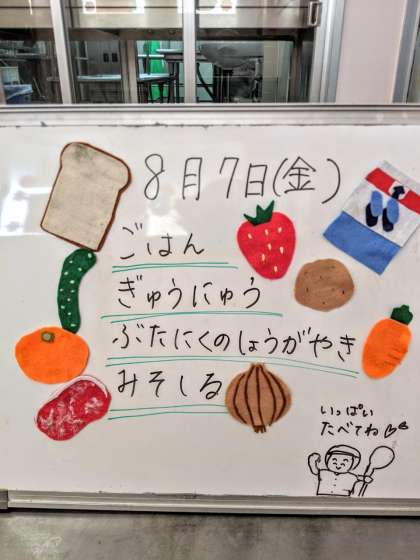 8月7日(金)
ごはん
ぎゅうにゅう
ぶたにくのしょうがやき
みそしる
いっぱい
たべてね♡♡